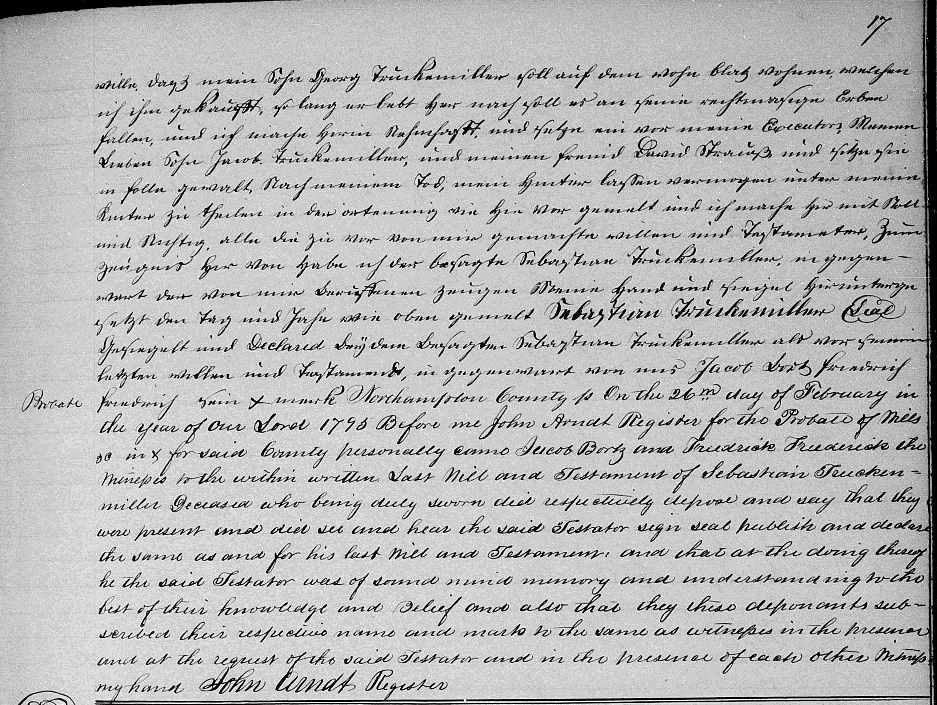 17
wille, dasz mein Sohn Georg Truckemiller soll auf dem wohn blatz wohnen, welchen
ich ihm gekaufft, so lang er lebt Her nach soll es an seine rechtmasige Erben
fallen, und ich mache Hermit Nahmhafft, und setze ein vor meine Executors Meinen
Lieben Sohn Jacob Truckemiller, und meinen freind David Strausz und setze sie
in folle gewalt, Nach meinem Tod, mein Hinter lassen vermogen unter meine
Kinter zu theilen in der ortennung wie Hie vor gemelt und ich mache Hir mit Null
und Nichtig, alle die zu vor von mir gemachte willen und Testameter, Zum
zeugnis Hir von Habe ich der besagte Sebastian Truckemiller, in gegen-
wart der von mir Beruffenen zeugen Meine Hand und siegel Hirunterge
setzt den Tag und Jahr wie oben gemelt Sebastian Truckemiller Seal
Gesiegelt und Declared Beÿ dem Besagten Sebastian Truckemiller als vor seinem
letzten willen und Testament, in gegenwart von uns Jacob Bort Friedrich
Probate Friedrich sein X mark Northampton County ss On the 26th day of February in
the year of Our Lord 1795 Before me John Arndt Register for the Probate of Wills
&c in & for said County personally came Jacob Bortz and Fredrick Frederick the
Witnesses to the within written Last Will and Testament of Sebastian Trucken-
miller Deceased who being duly sworn did respectively depose and say that they
were present and did see and hear the said Testator sign seal publish and declare
the same as and for his last Will and Testament, and that at the doing thereof
he the said Testator was of sound mind memory and understanding to the
best of their knowledge and Belief and also that they these deponants sub-
scribed their respective name and mark to the same as witnesses in the presence
and at the request of the said Testator and in the presence of each other Witness
my hand John Arndt Register